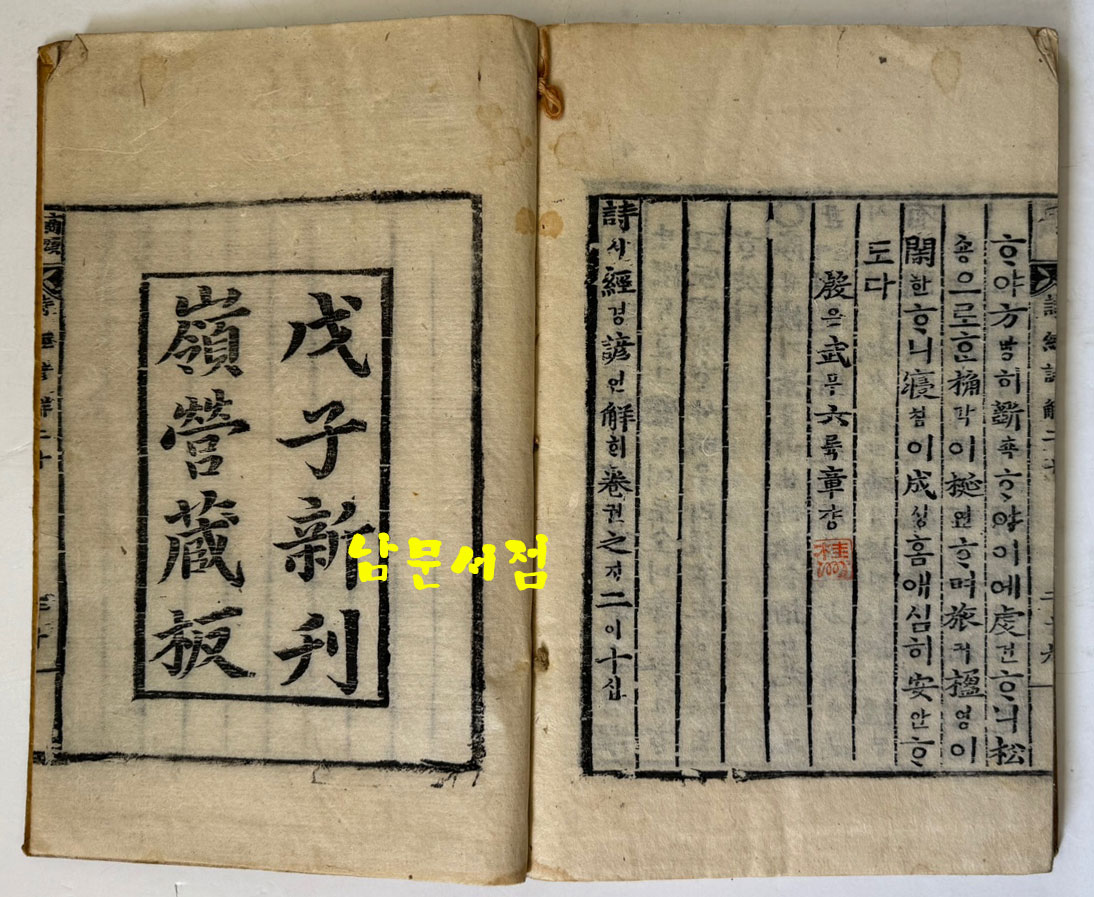 詩經諺解二十
ᄒᆞ야方방히斲착ᄒᆞ야이에虔건ᄒᆞ니松
숑으로ᄒᆞᆫ桷각이梴연ᄒᆞ며旅려楹영이
閑한ᄒᆞ니寢침이成셩홈애심히安안ᄒᆞ
도다
殷은武무六륙章쟝
詩시經경諺언解ᄒᆡ卷권之지二이十십
戊子新刊
嶺營藏板
商頌 詩經諺解二十
남문서점